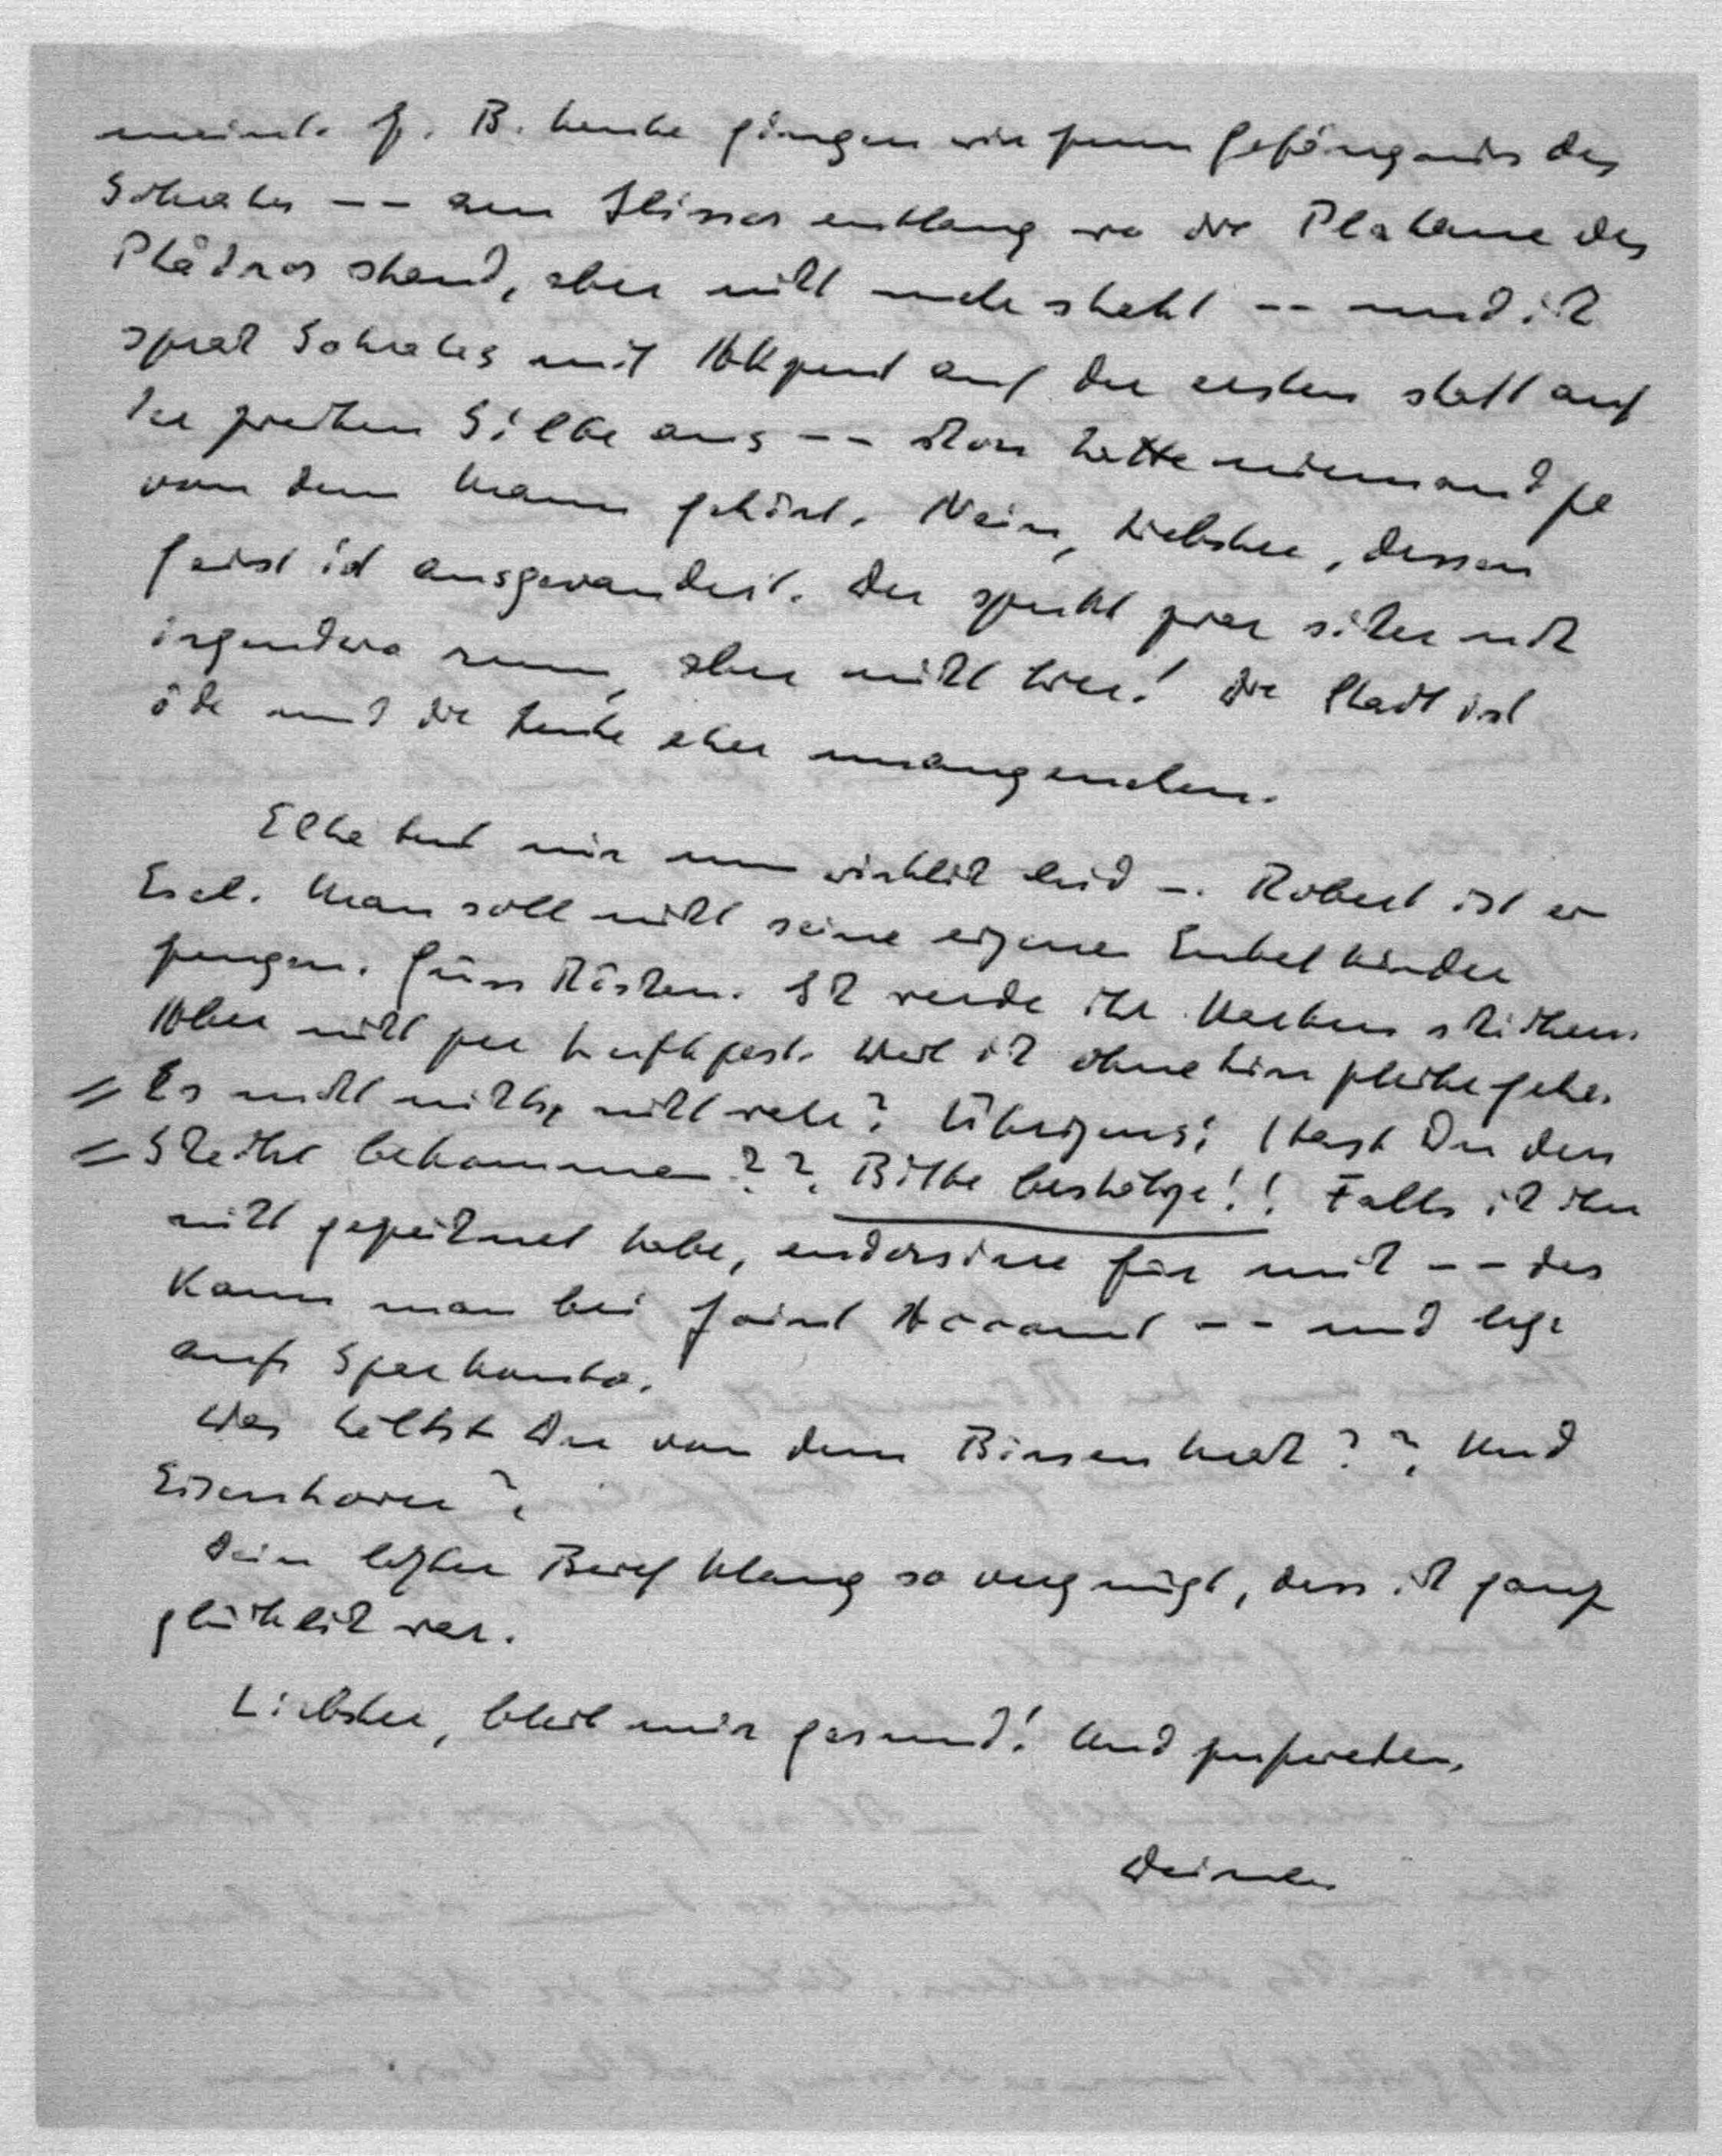 meinet. Z. B. heute gingen wir zum Gefängnis des
Sokrates -- am Ilissos entlang wo die Platane des
Phädros stand, aber nicht mehr steht -- und ich
sprach Sokrates mit Akzent auf der ersten statt auf
der zweiten Silbe aus -- schon hatte niemand je
von dem Mann gehört. Nein, Liebster, dessen
Geist ist ausgewandert. Der spukt zwar sicher noch
irgendwo rum, aber nicht hier! Die Stadt ist
öde und die Leute eher unangenehm.
Elke tut mir nun wirklich leid —. Robert ist ein
Esel. Man soll nicht seine eigenen Enkelkinder
zeugen. Grüss Röschen. Ich werde ihr Marken schicken.
Aber nicht per Luftpost. Weil ich ohnehin pleite gehe.
Es macht nichts, nicht wahr? Übrigens: Hast Du den
Scheck bekommen??. Bitte bestätige!! Falls ich ihn
nicht gezeichnet habe, endorsiere für mich -- das
kann man bei Joint Account -- und lege
aufs Sparkonto.
Was hältst Du von dem Binsenkrach??. Und
Eisenhower?
Dein letzter Brief klang so vergnügt, dass ich ganz
glücklich war.
Liebster, bleib mir gesund! Und zufrieden.
Deine